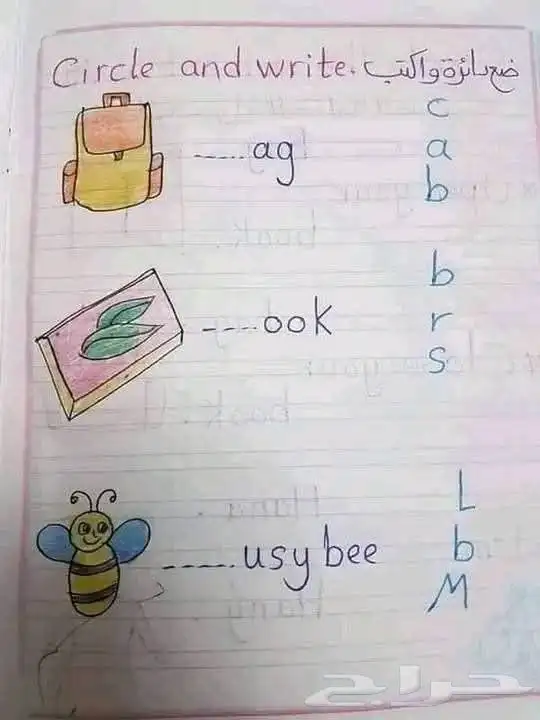 Circle and write. ضع دائرة واكتب
c
-----ag a
b
b
----ook r
s
L
-----usy bee b
M
حراج